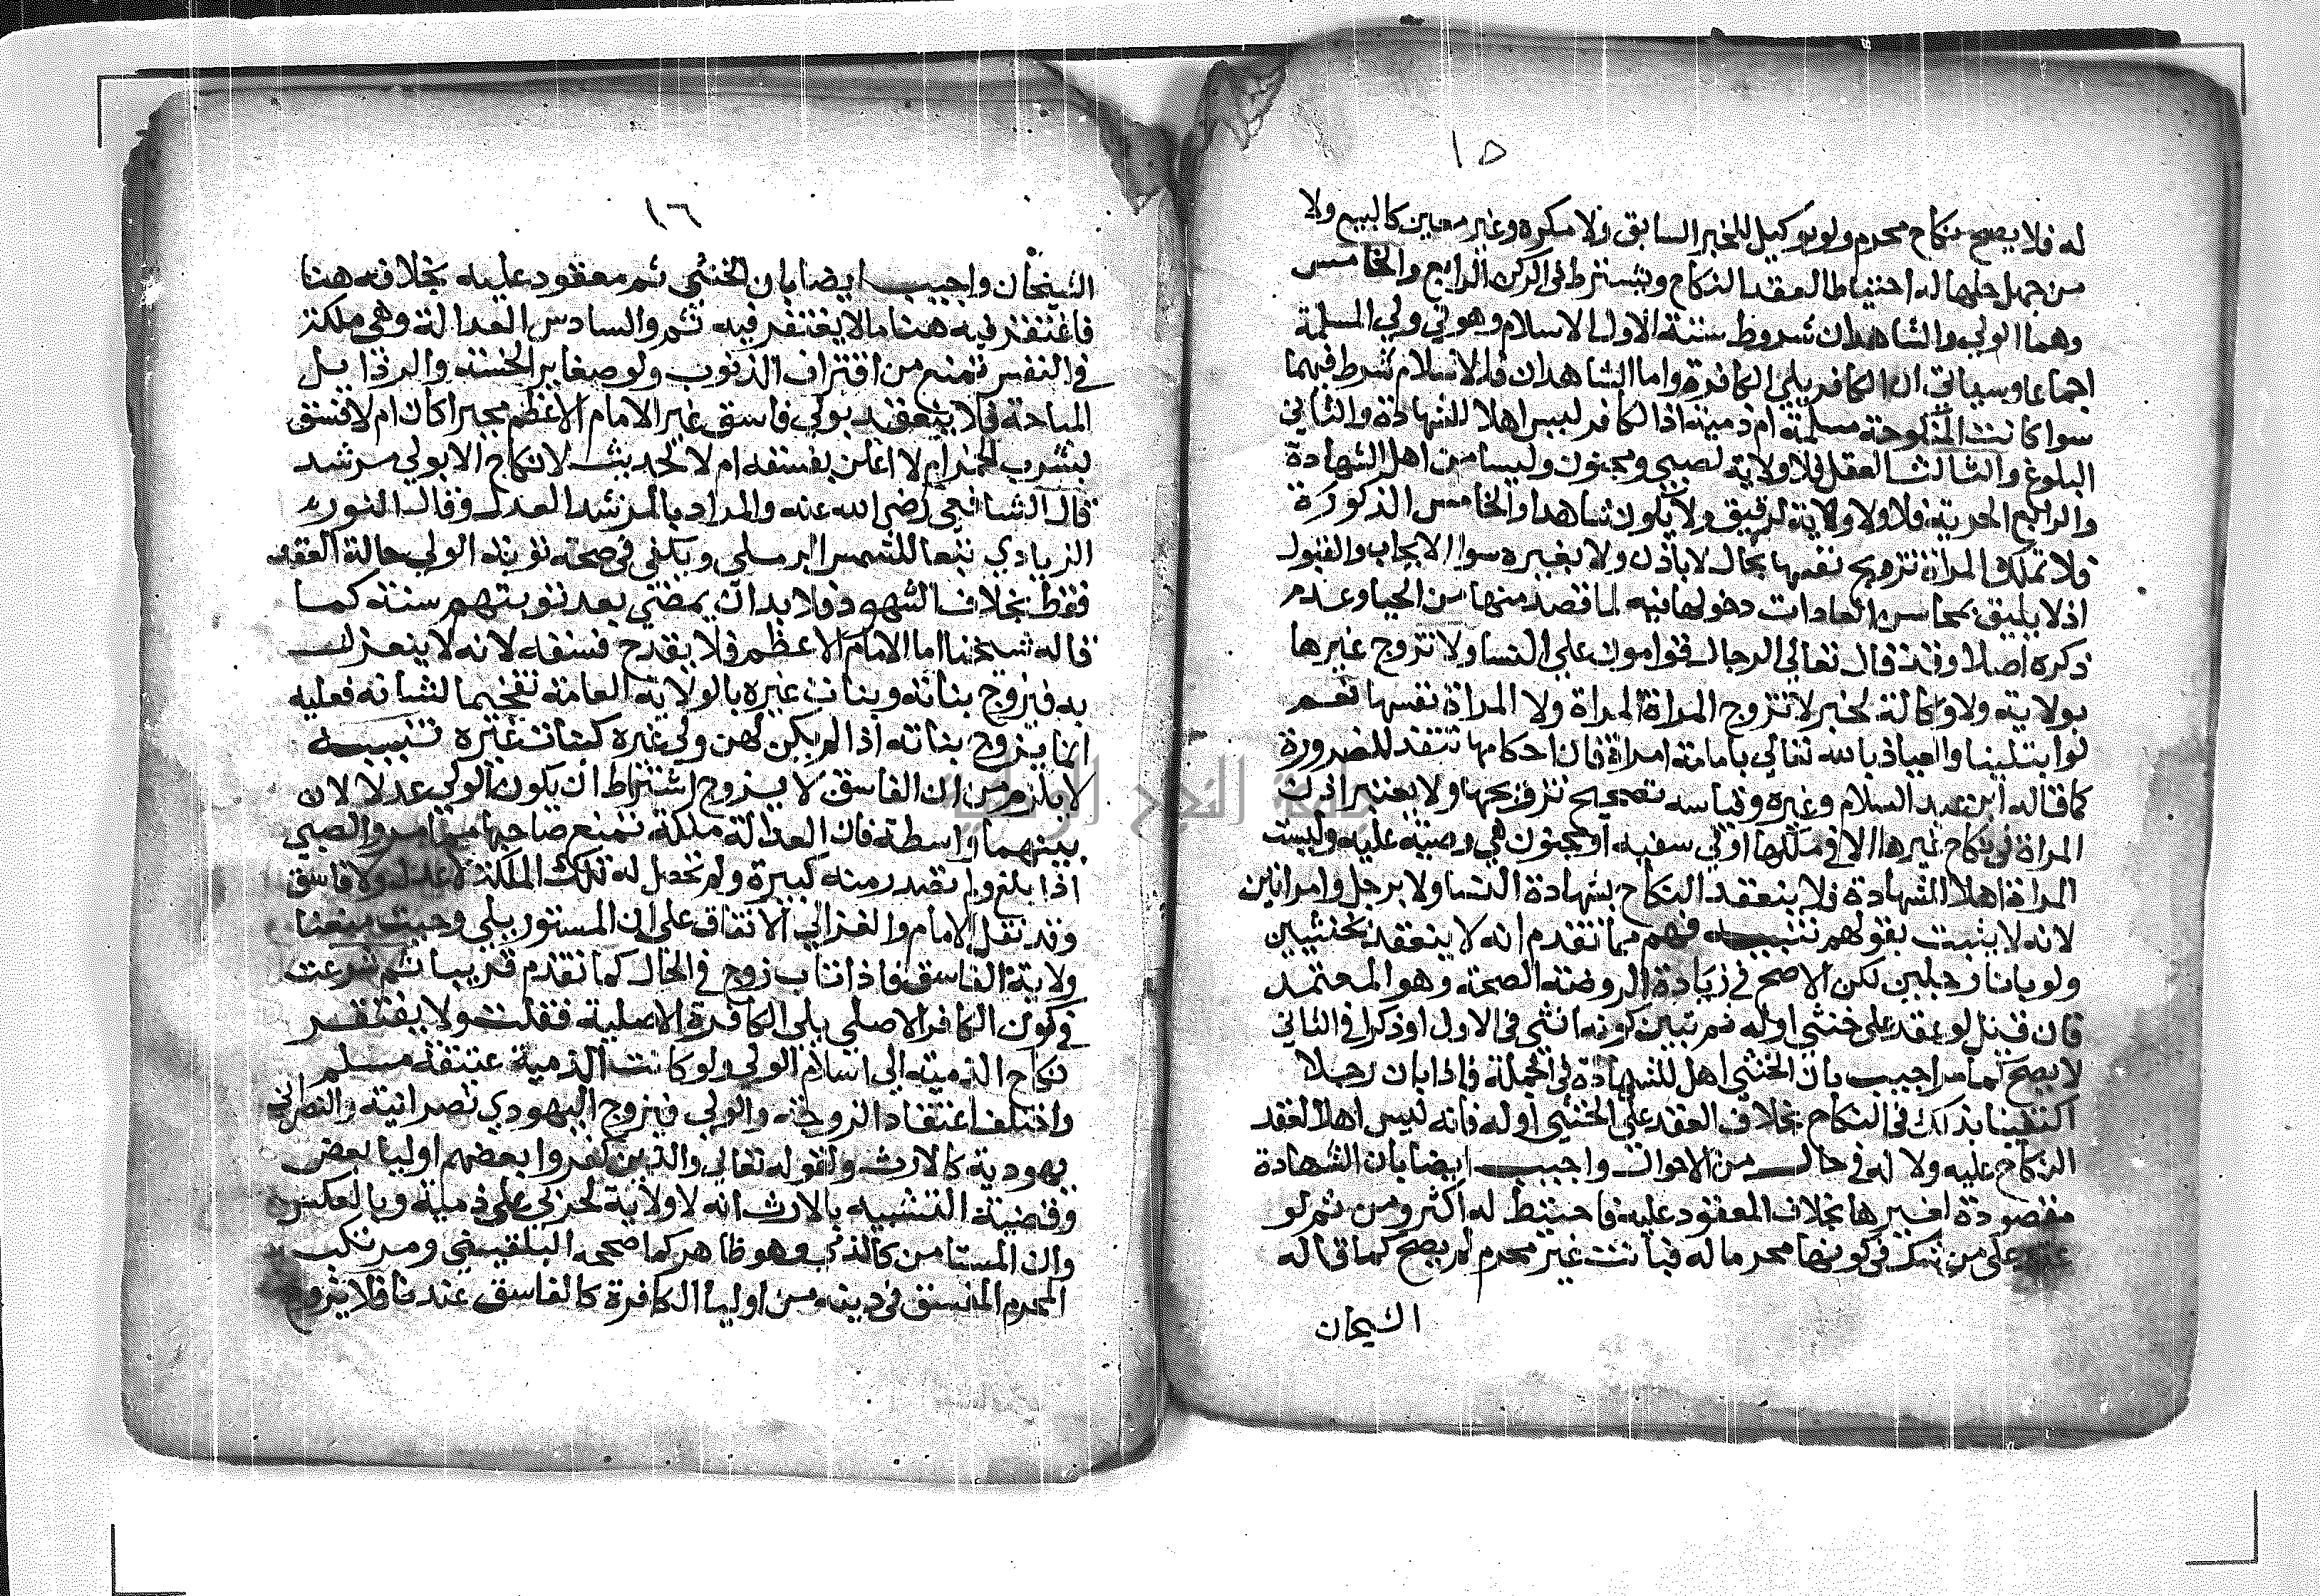 ١٥
له فلا يصح نكاح محرم ولو بوكيل للخبر السابق ولا مكره وغير معين كالبيع ولا
من جهل حلها له احتياطا لعقد النكاح ويشترط في الركن الرابع والخامس
وهما الولي والشاهدان شروط ستة الاول الاسلام وهو في ولي المسلمة
اجماعا وسياتي ان الكافر يلي الكافرة واما الشاهدان فالاسلام شرط فيهما
سوا كانت المنكوحة مسلمة ام ذمية اذ الكافر ليس اهلا للشهادة والثاني
البلوغ والثالث العقل فلا ولاية لصبي ومجنون وليسا من اهل الشهادة
والرابع الحرية فلا ولا ولاية لرقيق ولا يكون شاهدا والخامس الذكورة
فلا تملك المراة تزويج نفسها بحال لا باذن ولا بغيره سوا الايجاب والقبول
اذ لا يليق بمحاسن العادات دخولها فيه لما قصد منها من الحيا وعدم
ذكره اصلا وقد قال تعالي الرجال قوامون علي النسا ولا تزوج غيرها
بولاية ولا وكالة لخبر لا تزوج المراة المراة ولا المراة نفسها نعم
لو ابتلينا والعياذ بالله تعالي بامامة امراة فان احكامها تنفذ للضرورة
كما قاله ابن عبد السلام وغيره وقياسه تصحيح تزويجها ولا يعتبر اذن
المراة في نكاح غيرها الا في ملكها او في سفيه او مجنون هي وصية عليه وليست
المراة اهلا للشهادة فلا ينعقد النكاح بشهادة النسا ولا برجل وامراتين
لانه لا يثبت بقولهم تنبيه فهم مما تقدم انه لا ينعقد بخنثيين
ولو بانا رجلين لكن الاصح في زيادة الروضة الصحة وهو المعتمد
فان قيل لو عقد علي خنثي اوله ثم تبين كونه انثي في الاول او ذكرا في الثاني
لا يصح لما مر اجيب بان الخنثي اهل للشهادة في الجملة فاذا بان رجلا
اكتفينا بذلك في النكاح بخلاف العقد علي الخنثي اوله فانه ليس اهلا لعقد
النكاح عليه ولا له في حال من الاحوال واجيب ايضا بان الشهادة
مقصودة لغيرها بخلاف المعقود عليه فاحتيط له اكثر ومن ثم لو
عقد علي من شك في كونها محرما له فبانت غير محرم لم يصح كما قاله
الشيخان
١٦
الشيخان واجيب ايضا بان الخنثي ثم معقود عليه بخلافه هنا
فاغتفر فيه هنا ما لا يغتفر فيه ثم والسادس العدالة وهي ملكة
في النفس تمنع من اقتراف الذنوب ولو صغاير الخسة والرذايل
المباحة فلا ينعقد بولي فاسق غير الامام الاعظم مجبرا كان ام لا فسق
بشرب الخمر ام لا اعلن بفسقه ام لا لحديث لا نكاح الا بولي مرشد
قال الشافعي رضي الله عنه والمراد بالمرشد العدل وقال النور
الزيادي تبعا للشمس الرملي ويكفي في صحته توبة الولي حالة العقد
فقط بخلاف الشهود فلا بد ان يمضي بعد توبتهم سنة كما
قاله شيخنا اما الامام الاعظم فلا يقدح فسقه لانه لا ينعزل
به فيزوج بناته وبنات غيره بالولاية العامة تفخيما لشانه فعليه
انما يزوج بناته اذا لم يكن لهن ولي غيره كبنات غيره تنبيه
لا يلزم من ان الفاسق لا يزوج اشتراط ان يكون الولي عدلا لان
بينهما واسطة فان العدالة ملكة تمنع صاحبها مما مر والصبي
اذا بلغ ولم تصدر منه كبيرة ولم تحصل له تلك الملكة لا عدل ولا فاسق
وقد نقل الامام والغزالي الاتفاق علي ان المستور يلي وحيث منعنا
ولاية الفاسق فاذا تاب زوج في الحال كما تقدم قريبا ثم شرعت
في كون الكافر الاصلي يلي الكافرة الاصلية فقلت ولا يفتقر
نكاح الذمية الي اسلام الولي ولو كانت الذمية عتيقة مسلم
واختلف اعتقاد الزوجة والولي فيزوج اليهودي نصرانية والنصراني
يهودية كالارث ولقوله تعالي والذين كفروا بعضهم اوليا بعض
وقضية التشبيه بالارث انه لا ولاية لحربي علي ذمية وبالعكس
وان المستامن كالذمي وهو ظاهر كما صححه البلقيني ومرتكب
المحرم المفسق في دينه من اوليا الكافرة كالفاسق عندنا فلا يزوج